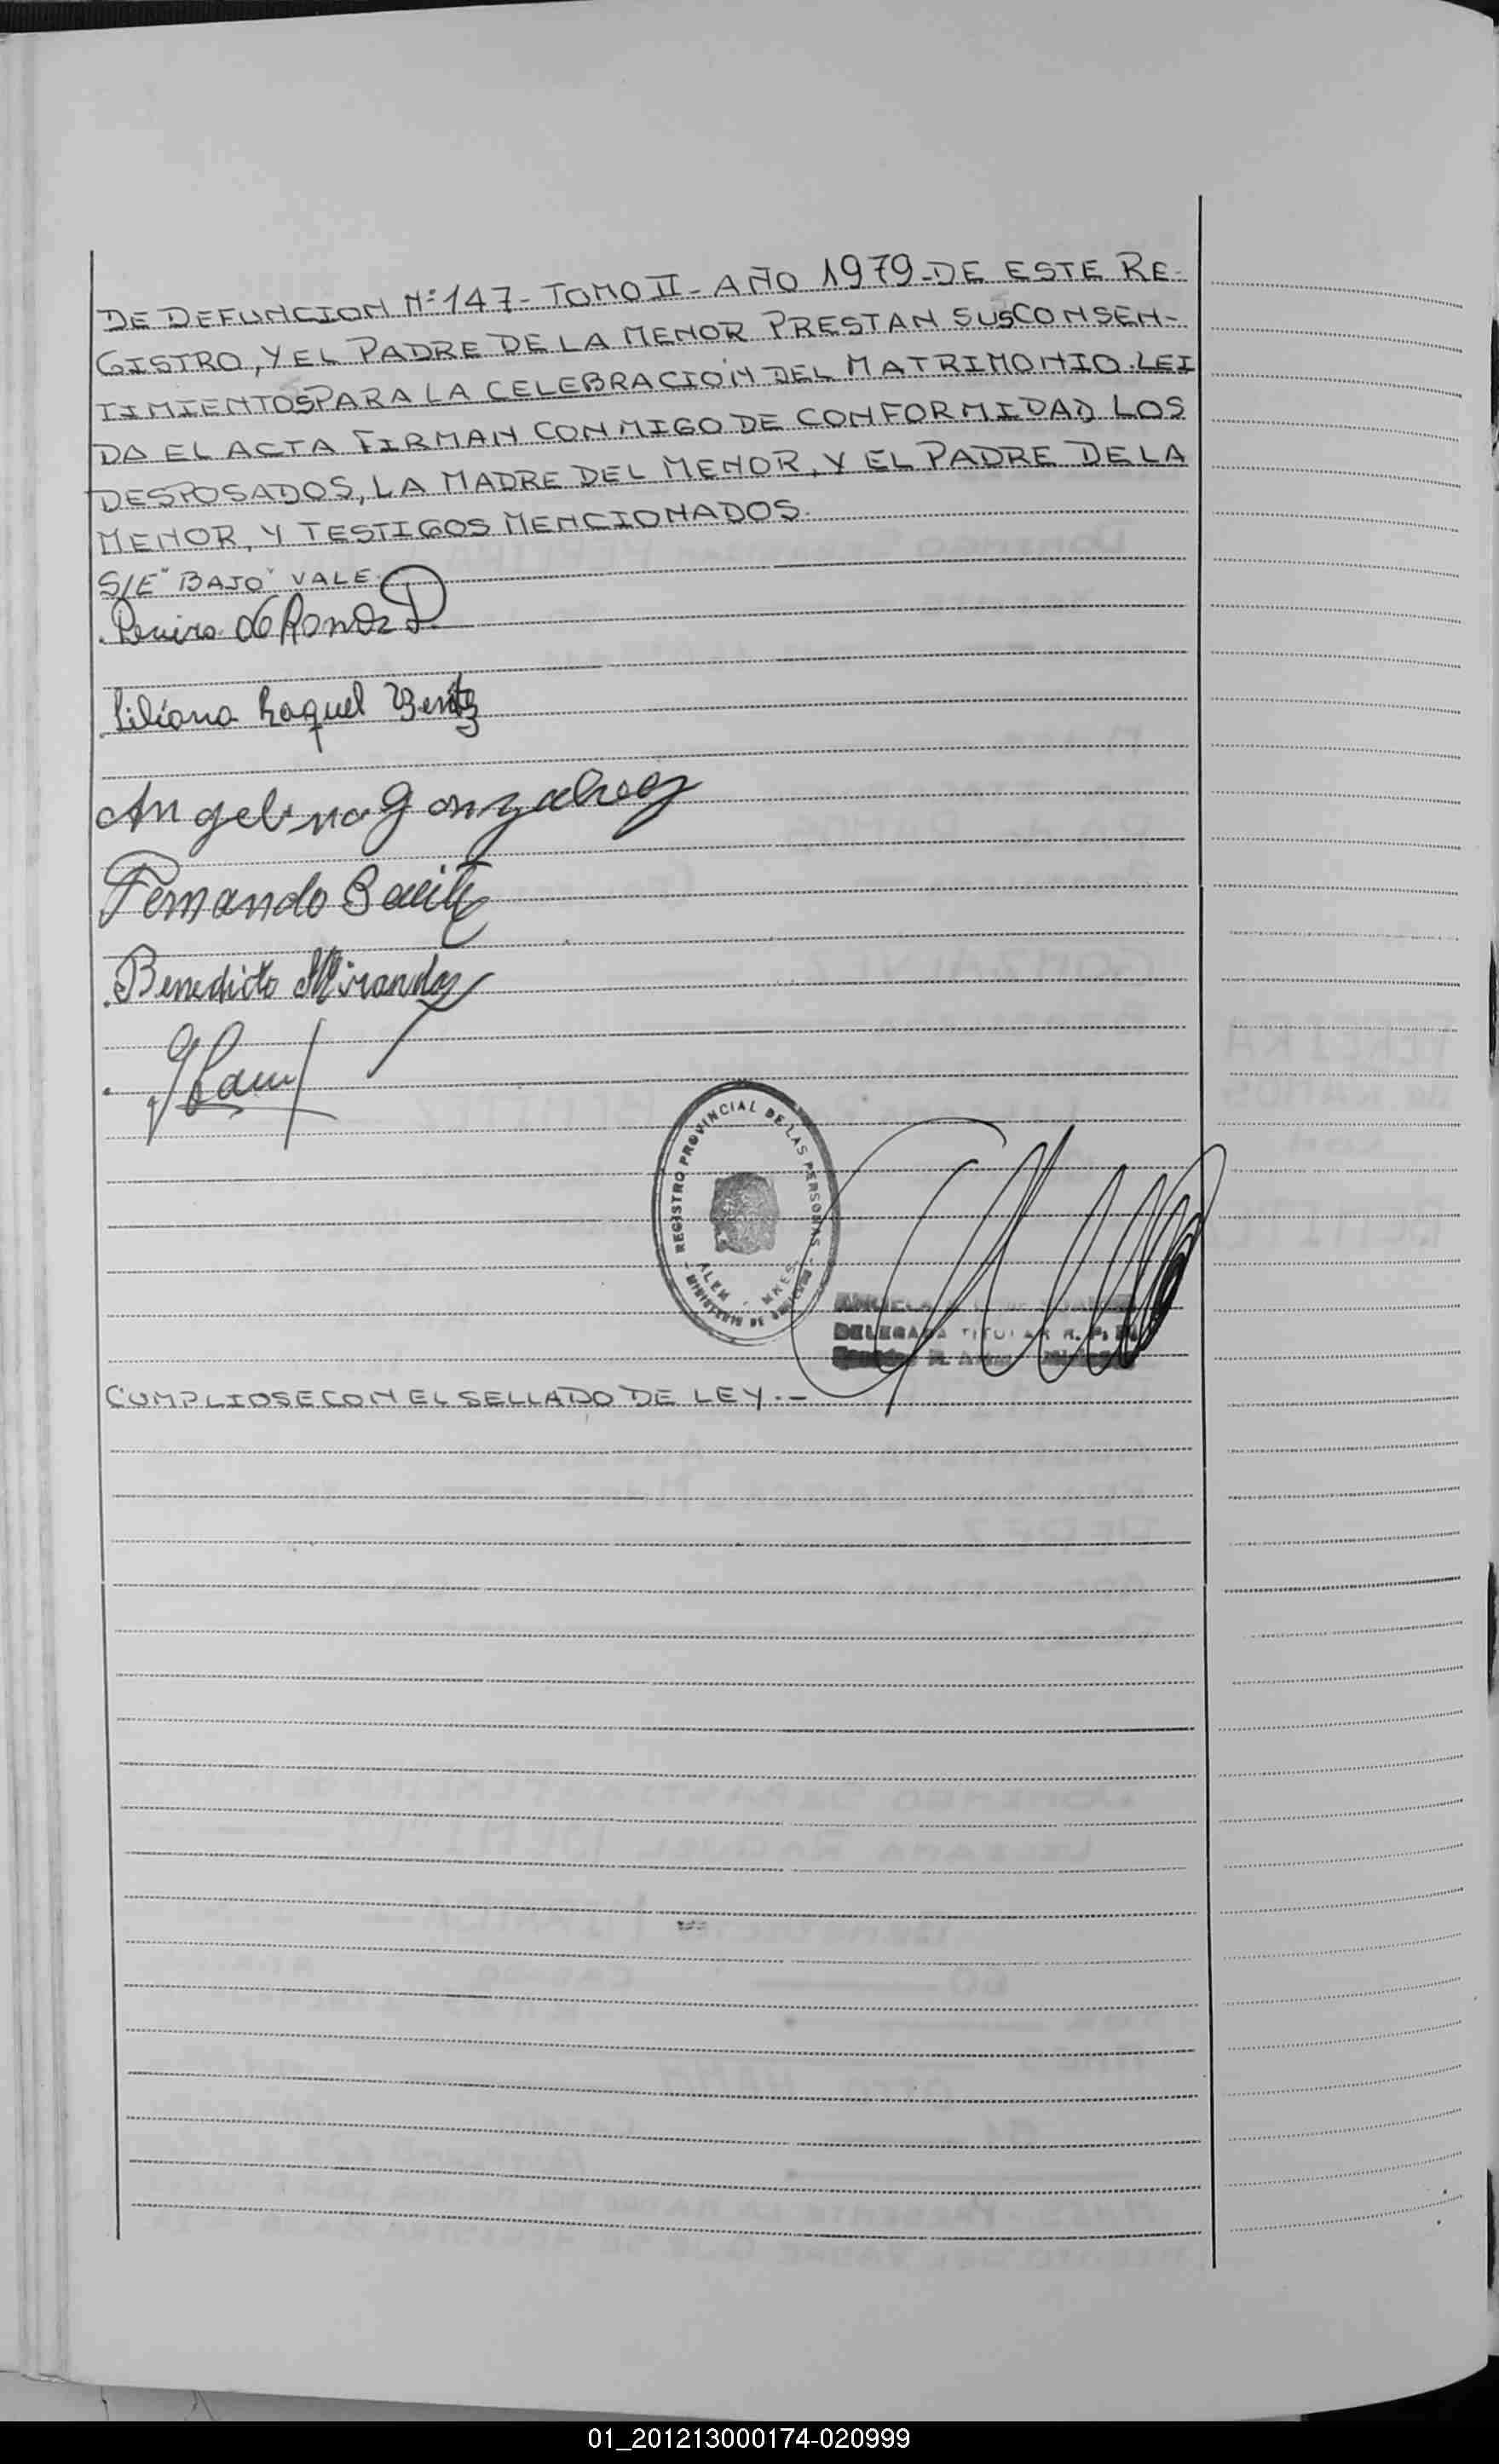 DE DEFUNCION Nº 147- TOMO II - AÑO 1979-DE ESTE RE-
GISTRO, Y EL PADRE DE LA MENOR PRESTAN SUS CONSEN-
TIMIENTOS PARA LA CELEBRACIÓN DEL MATRIMONIO. LEI
DA EL ACTA FIRMAN CONMIGO DE CONFORMIDAD LOS
DESPOSADOS, LA MADRE DEL MENOR, Y EL PADRE DE LA
MENOR, Y TESTIGOS MENCIONADOS.
S/E "BAJO" VALE.
D.
Liliana Raquel Benitz
Angelina Gonzalvez
Fernando
Benedicto Miranda
REGISTRO PROVINCIAL DE LAS PERSONAS
ALEM - MNES.
MINISTERIO DE
DELEGADA TITULAR R. P.
CUMPLIOSE CON EL SELLADO DE LEY.-
01_201213000174-020999